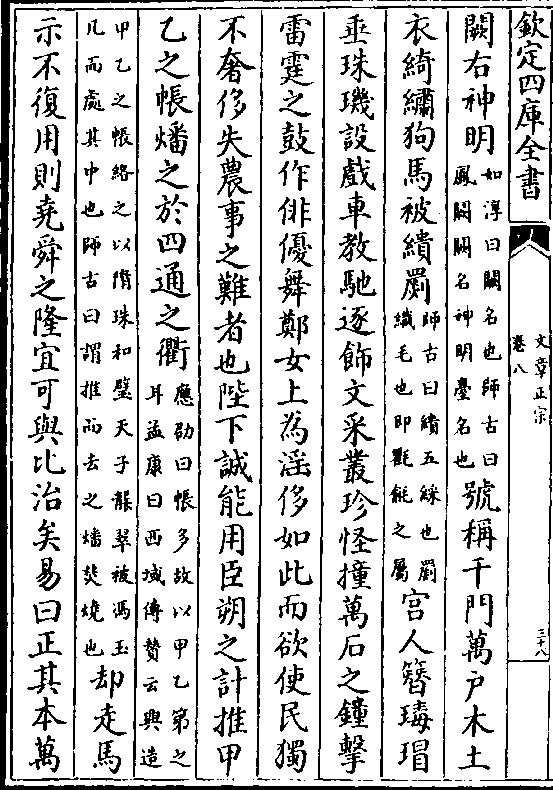 欽定四庫全書
文章正宗
卷八
三十八
闕右神明如淳曰闕名也師古曰鳳闕闕名神明臺名也號稱千門萬户木土
衣綺繡狗馬被繢罽師古曰繢五綵也罽織毛也即氍毹之屬宫人簪瑇瑁
垂珠璣設戲車教馳逐飾文采叢珍怪撞萬石之鐘擊
雷霆之鼓作俳優舞鄭女上為淫侈如此而欲使民獨
不奢侈失農事之難者也陛下誠能用臣朔之計推甲
乙之帳燔之於四通之衢應劭曰帳多故以甲乙第之耳孟康曰西域傳贊云興造
甲乙之帳絡之以隋珠和璧天子襲翠被馮玉几而處其中也師古曰謂推而去之燔焚燒也却走馬
示不復用則堯舜之隆宜可與比治矣易曰正其本萬